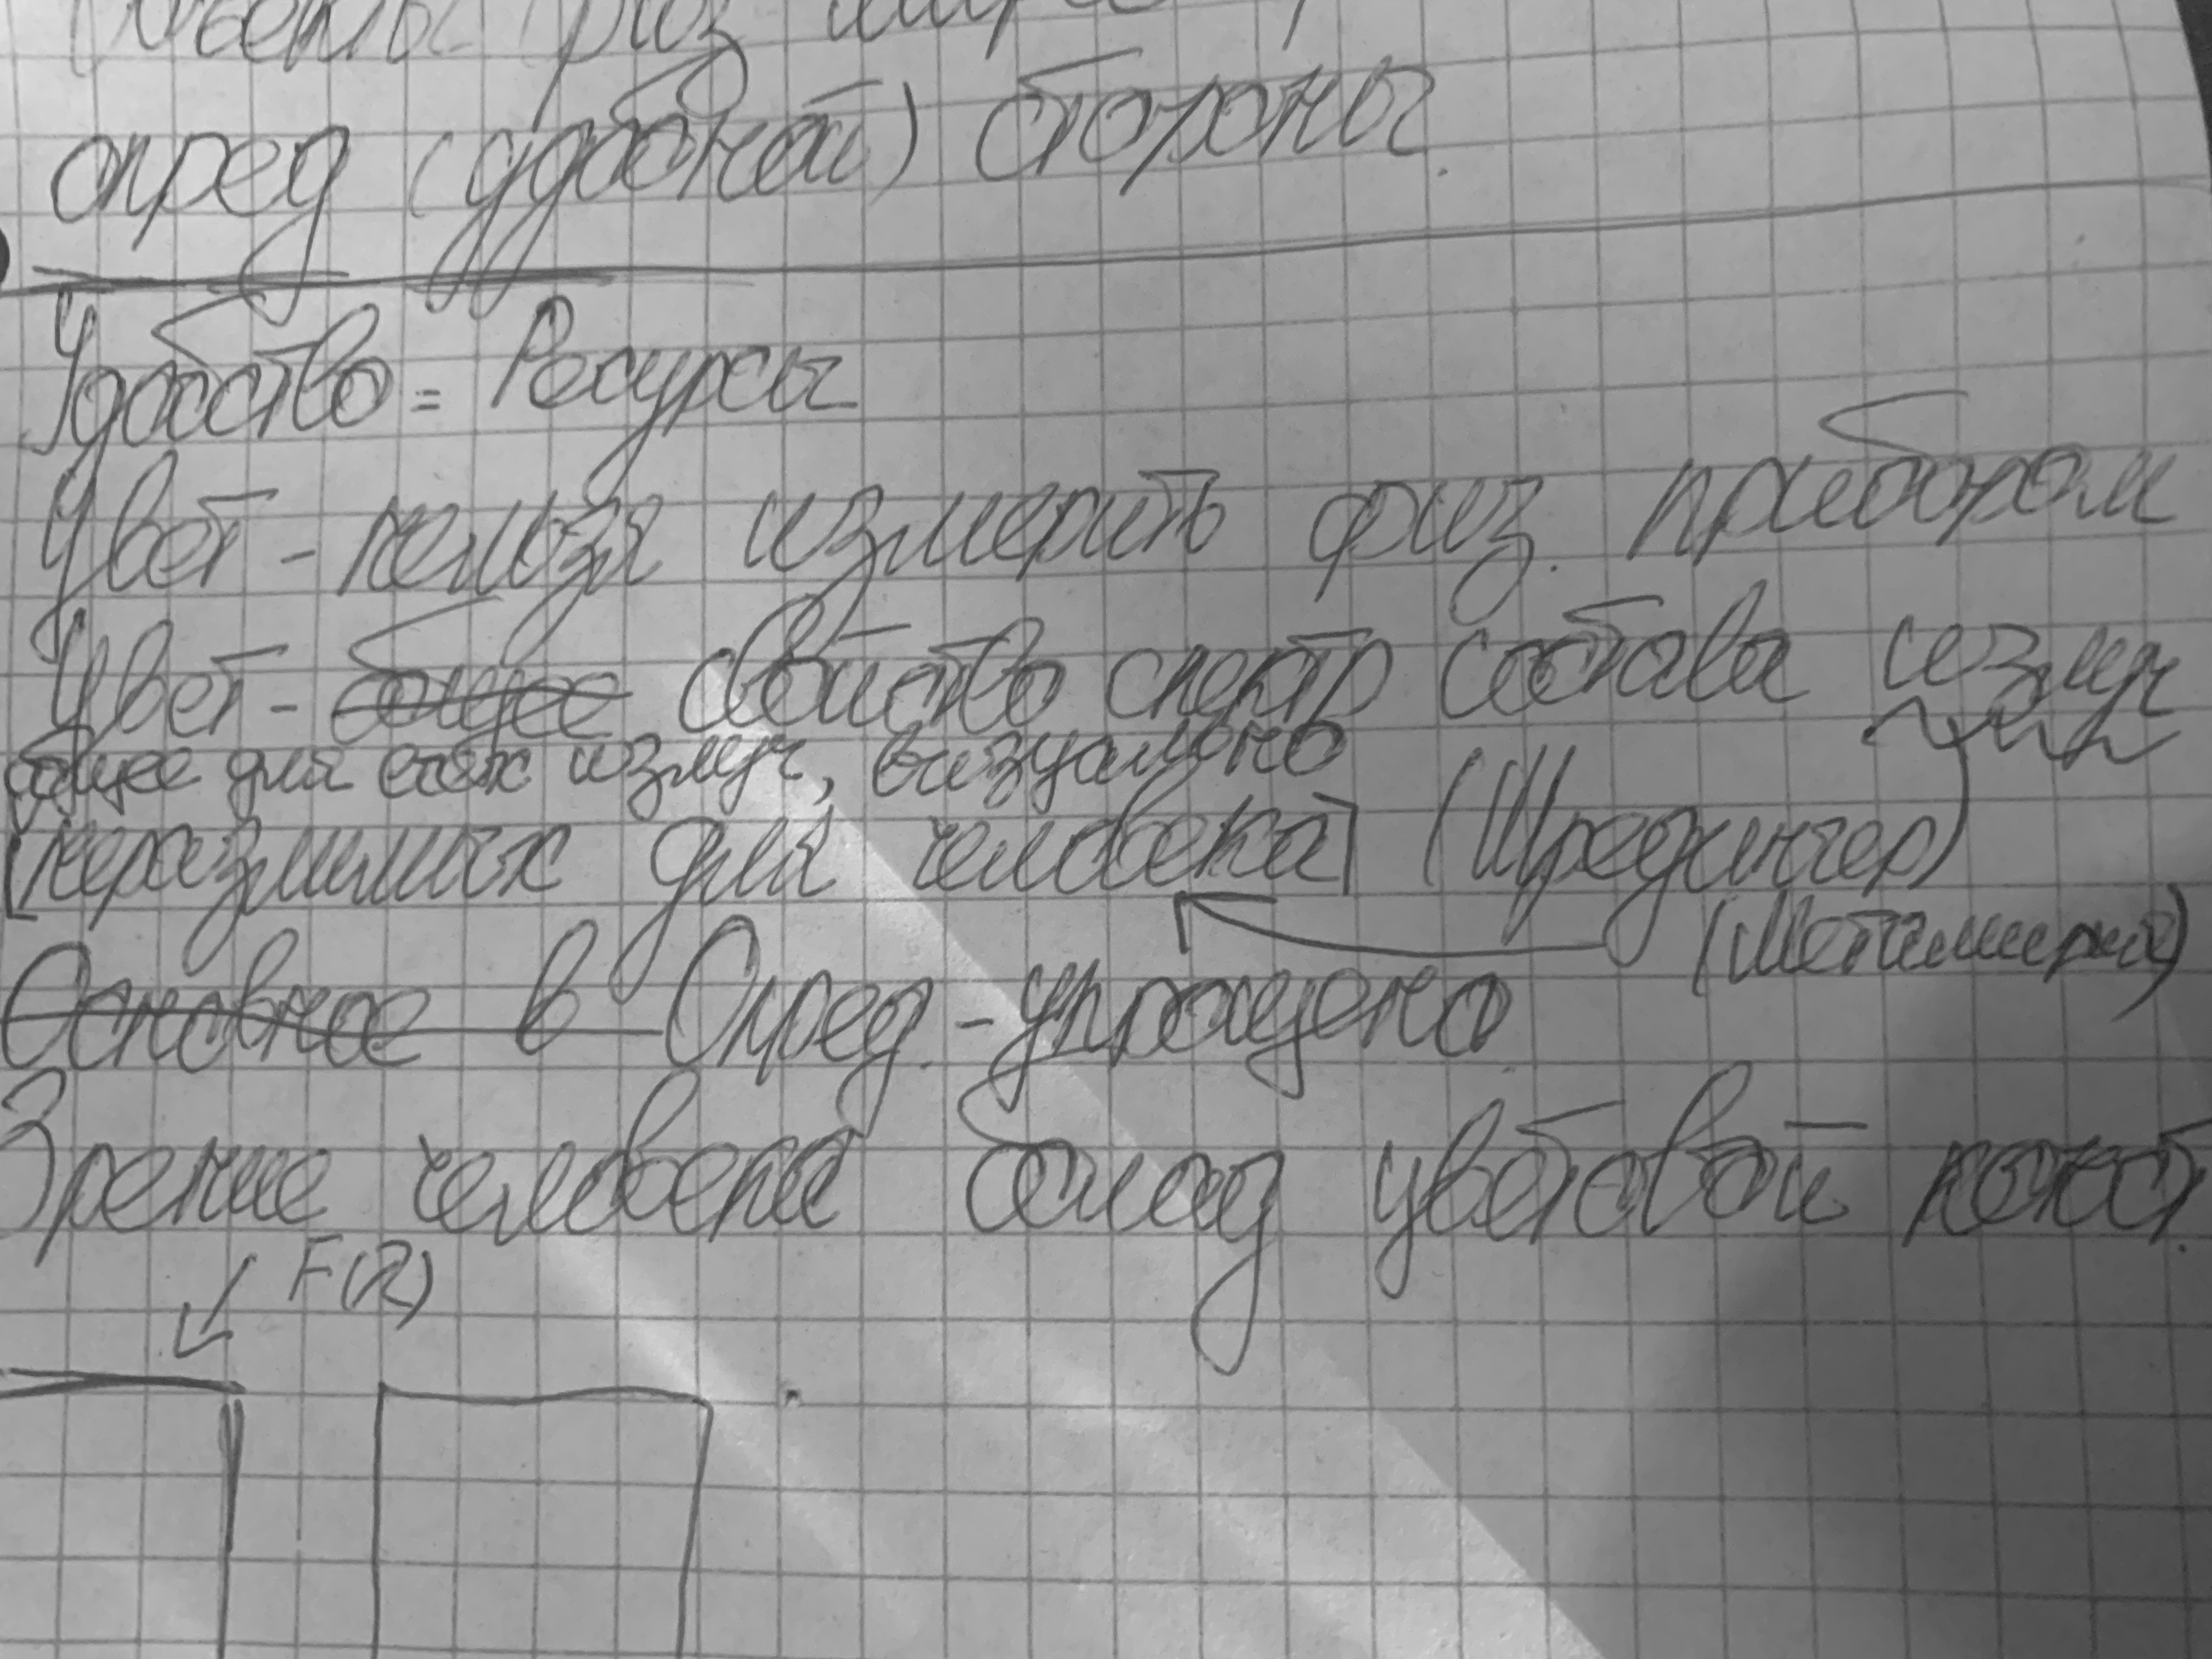 объекты физ мира с
опред (удобной) стороны.
Удобство = Ресурсы
Цвет - нельзя измерить физ. прибором
Цвет - общее свойство спектр состава излуч
общее для всех излуч, визуально
[неразлимых для человека] (Шредингер)
(Метамерия)
Основное в Опред. - упрощено.
Зрение человека облад цветовой конст.
F(λ)